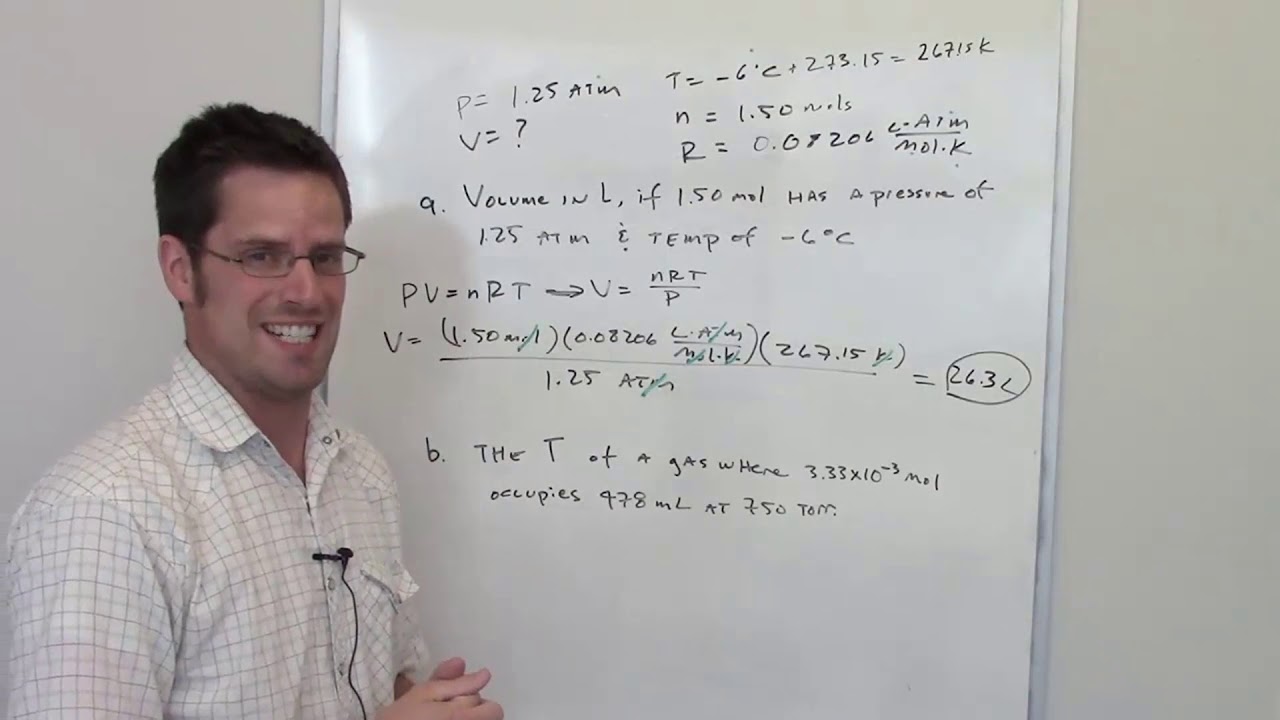 P = 1.25 ATM
V = ?
T = -6°C + 273.15 = 267.15 K
n = 1.50 mols
R = 0.08206 L·ATM/mol·K
a. VOLUME IN L, if 1.50 mol HAS A pressure of
1.25 ATM & TEMP of -6°C
PV = nRT → V = nRT/P
V = (1.50 mol)(0.08206 L·ATM/mol·K)(267.15 K)/1.25 ATM = 26.3 L
b. THE T of A gAS wHere 3.33x10⁻³ mol
occupies 478 mL AT 750 Torr.